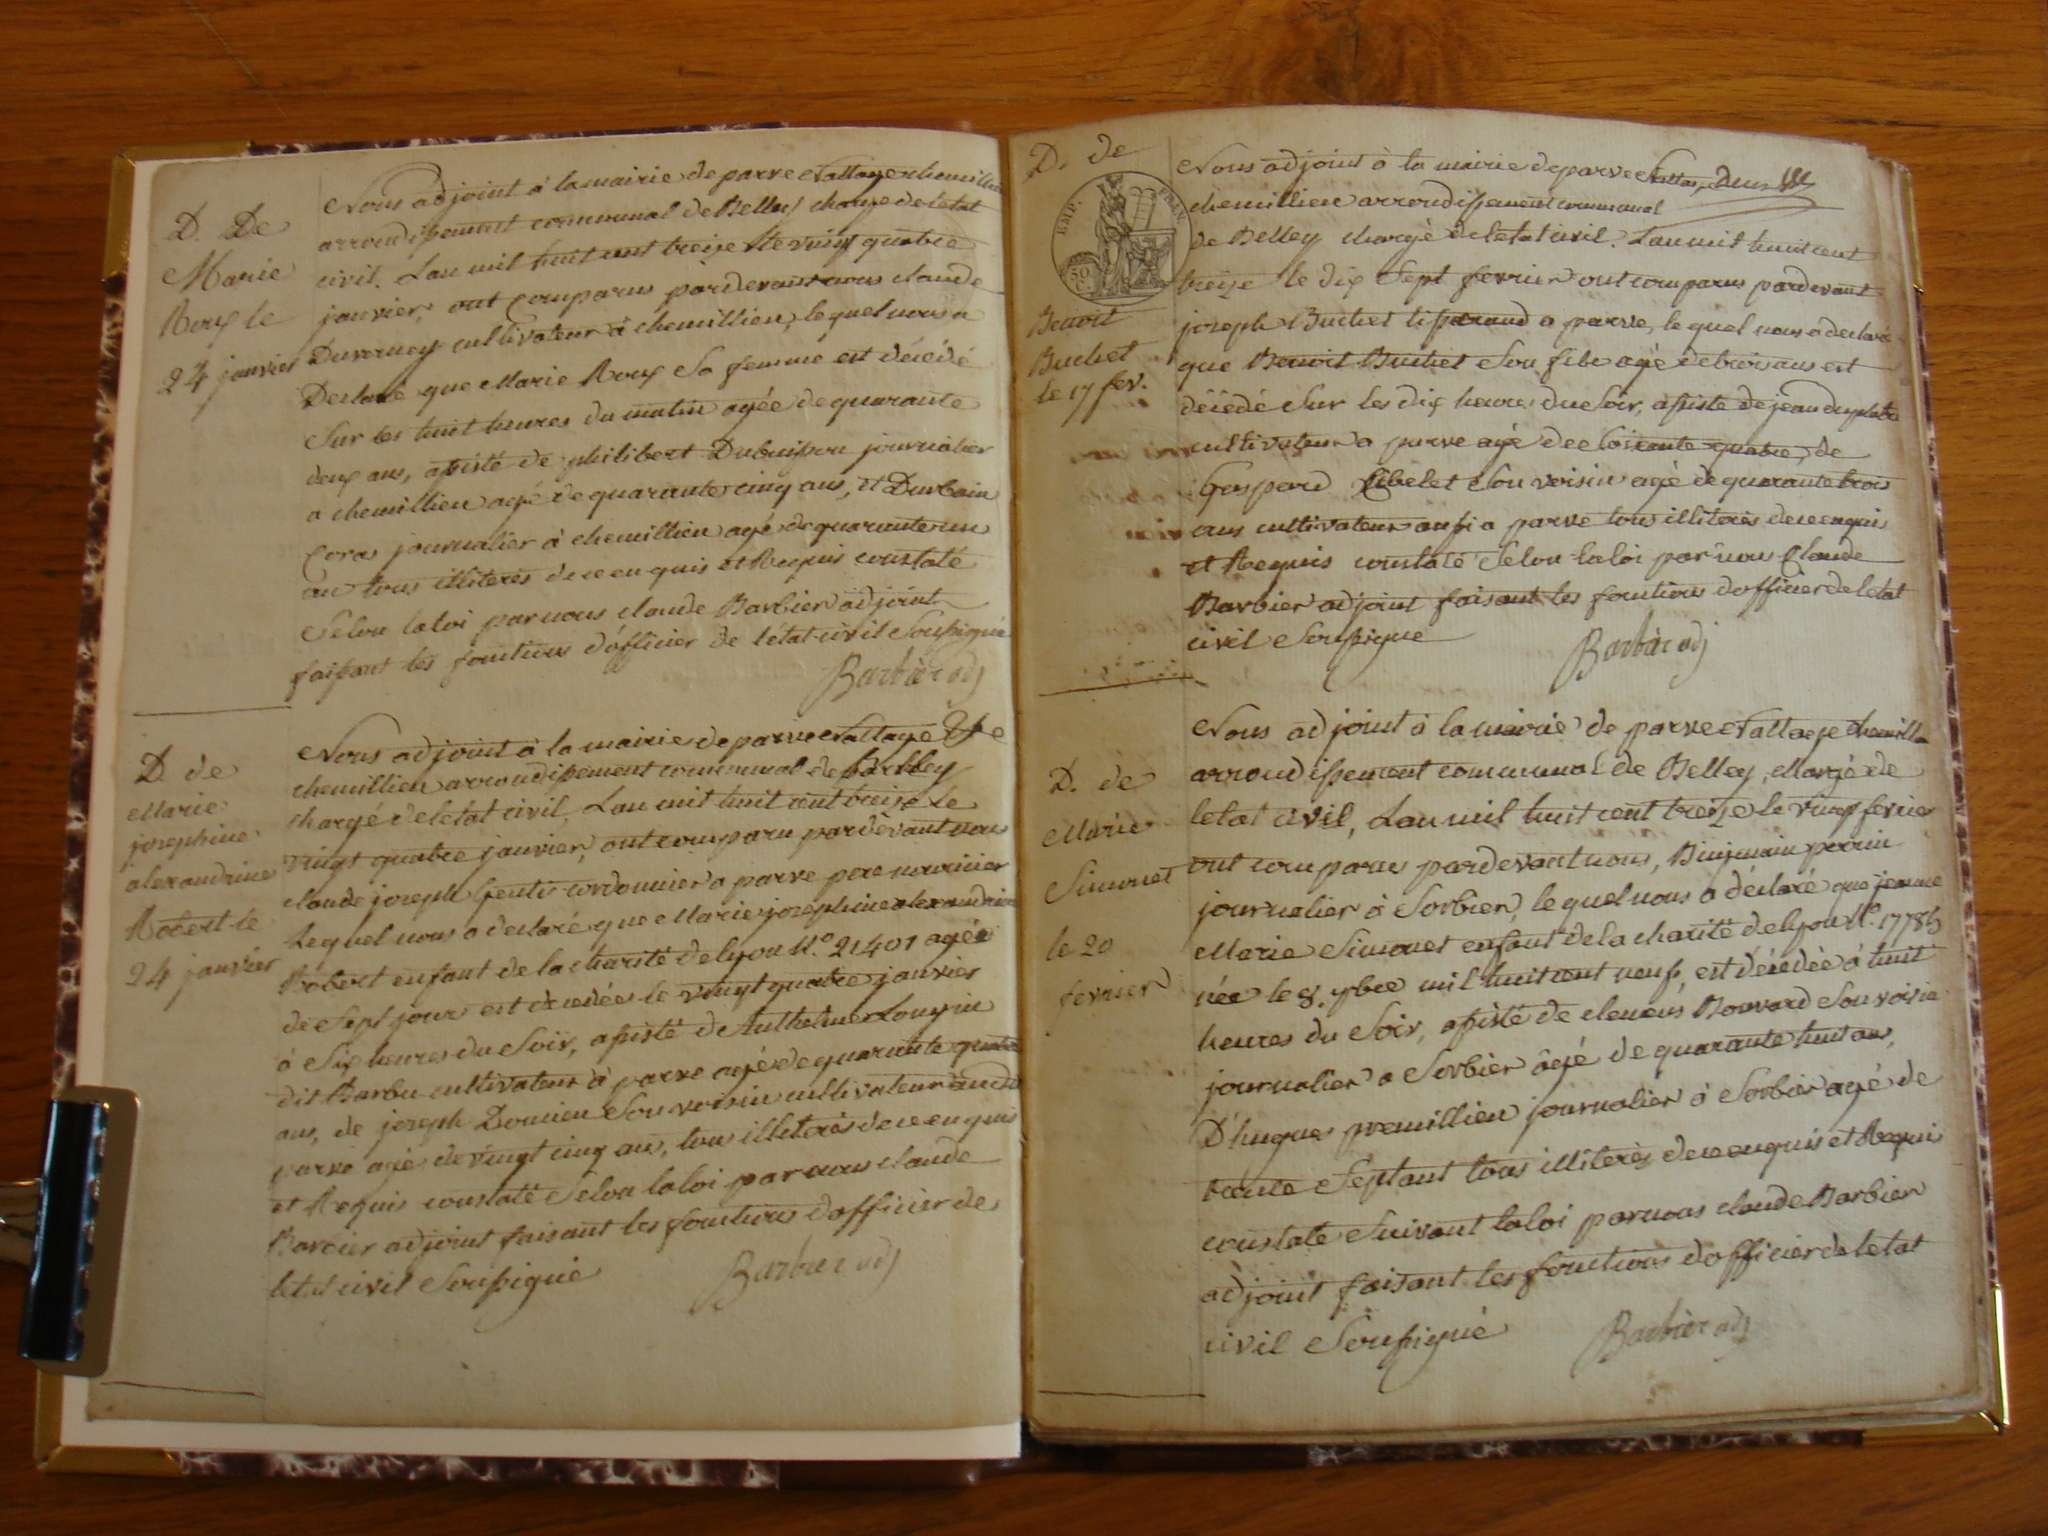 D. De
Marie
Roux le
24 janvier
Nous adjoint à la mairie de parve Nattage chemillieu
arrondissement communal de Belley chargé de letat
civil. Lan mil huit cent treize le vingt quatre
janvier, ont comparus pardevant nous claude
Duverney cultivateur à chemillieu, lequel nous a
Declaré que Marie Roux Sa femme est décédé
Sur les huit heures du matin agée de quarante
deux ans, assisté de philibert Dubuisson journalier
a chemillieu agé de quarante cinq ans, et Durbain
Cora journalier à chemillieu agé de quarante un
an tous illiterés de ce enquis et Requis constaté
Selon la loi par nous claude Barbier adjoint
faisant les fonctions d'officier de l'état civil Soussigné
Barbier adj
D. de
Marie
josephine
alexandrine
Robert le
24 janvier
Nous adjoint à la mairie de parve Nattage
chemillieu arrondissement communal de Belley
chargé de letat civil, Lan mil huit cent treize le
vingt quatre janvier, ont comparu pardevant nous
claude joseph Gentis cordonnier a parve pere nourricier
Lequel nous a declaré que Marie josephine alexandrine
Robert enfant de la charité de lyon N.o 21401 agée
de Sept jours est decedée le vingt quatre janvier
à Six heures du Soir, assisté d'Anthelme Lougin
dit Barbu cultivateur à parve agé de quarante quatre
ans, de joseph Domien Son voisin cultivateur audit
parve agé de vingt cinq ans, tous illiterés de ce enquis
et Requis constaté Selon la loi par nous claude
Barbier adjoint faisant les fonctions d'officier de
letat civil Soussigné
Barbier adj
D. de
EMP. FRAN.
50 C.
Benoit
Buchet
le 17 fev.
Nous adjoint à la mairie de parve Nattage
chemillieu arrondissement communal
de Belley chargé de letat civil. Lan mil huit cent
treize le dix Sept fevrier ont comparus pardevant
joseph Buchet tisserand a parve, lequel nous a declaré
que Benoit Buchet Son fils agé de trois ans est
décédé Sur les dix heures du Soir, assisté de jean
cultivateur a parve agé de Soixante quatre, de
Gaspard Ribelet Son voisin agé de quarante trois
ans cultivateur aussi a parve tous illiterés de ce enquis
et Requis constaté Selon la loi par nous Claude
Barbier adjoint faisant les fonctions d'officier de letat
civil Soussigné
Barbier adj
D. de
Marie
Simonet
le 20
fevrier
Nous adjoint à la mairie de parve Nattage
arrondissement communal de Belley, chargé de
letat civil, Lan mil huit cent treize le vingt fevrier
ont comparus pardevant nous, Binjamin perrin
journalier à Sorbier, lequel nous a déclaré que jeanne
Marie Simonet enfant de la charité de lyon N.o 17785
née le 8. 7bre mil huit cent neuf, est décedée à huit
heures du Soir, assisté de clemens Bouvard Son voisin
journalier a Sorbier âgé de quarante huit ans,
D'hugues premillieu journalier à Sorbier agé de
trente Sept ans tous illiterés de ce enquis et Requis
constaté Suivant la loi par nous claude Barbier
adjoint faisant les fonctions d'officier de letat
civil Soussigné
Barbier adj